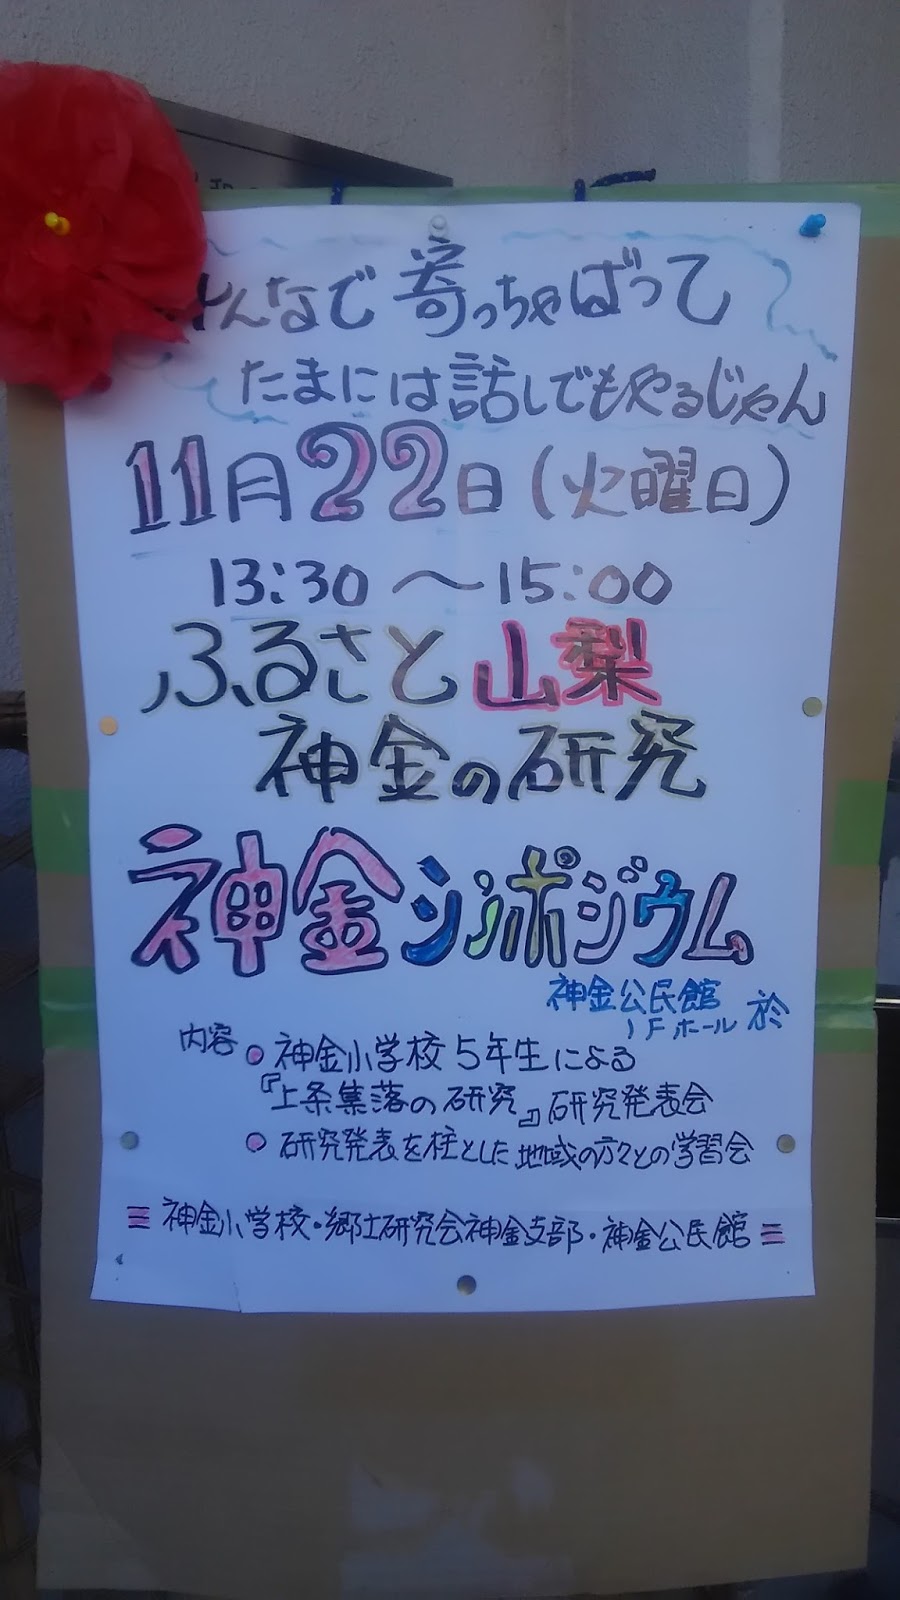 んなで寄っちゃばって
たまには話しでもやるじゃん
11月22日(火曜日)
13:30〜15:00
ふるさと山梨
神金の研究
神金シンポジウム
神金公民館
1Fホール 於
内容 ○ 神金小学校5年生による
『上条集落の研究』研究発表会
○ 研究発表を柱とした地域の方々との学習会
三 神金小学校・郷土研究会神金支部・神金公民館 三